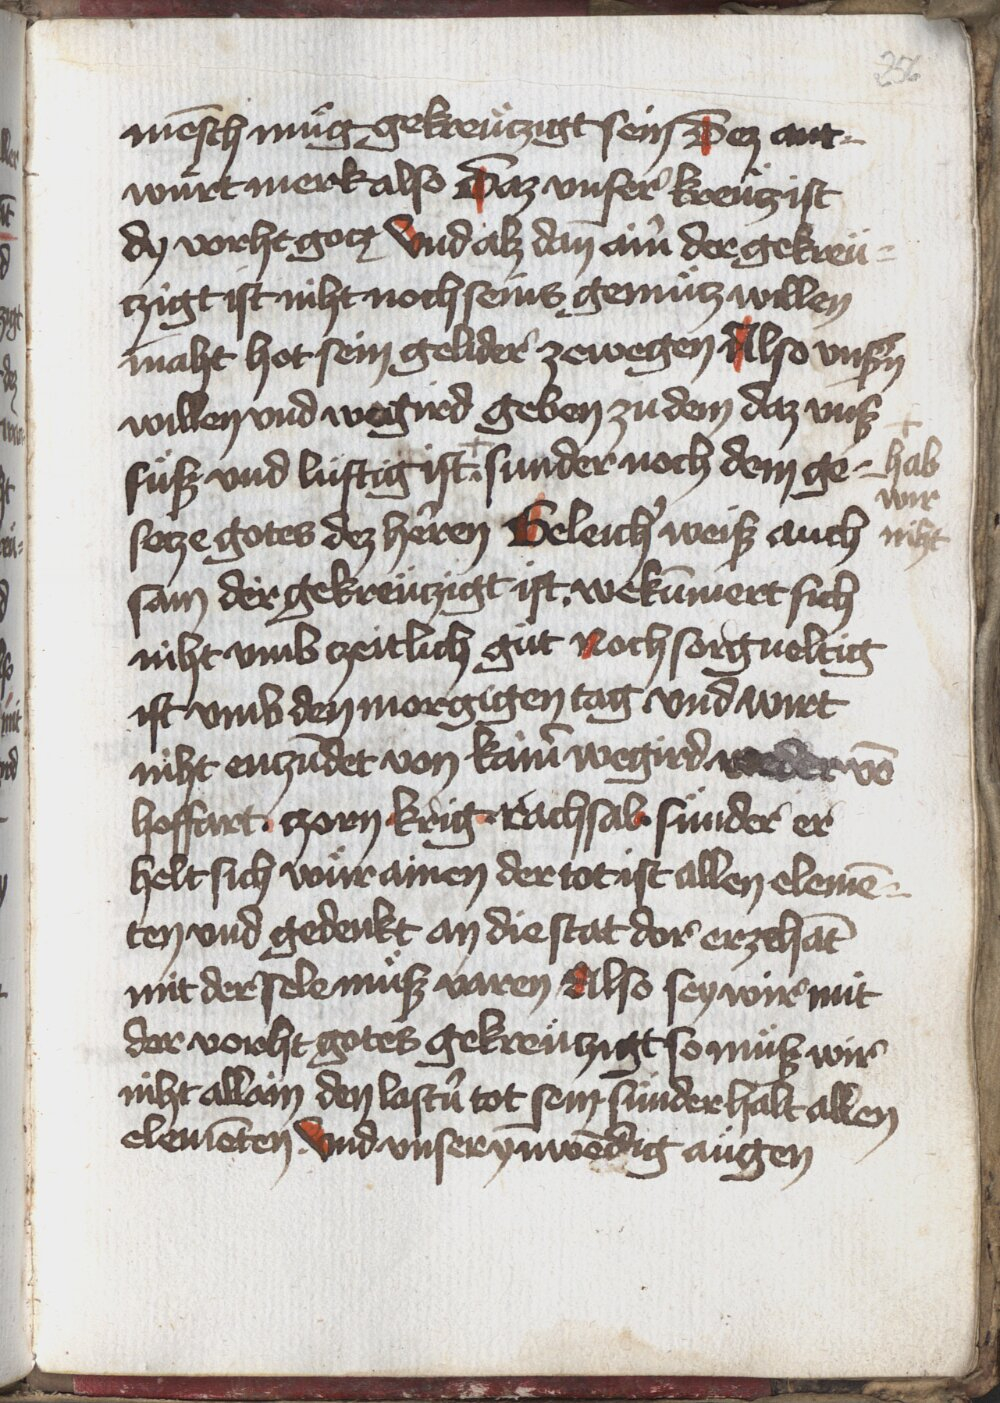 256
mēsch müg gekreützigt sein Dez ant-
würt merk also Daz vnser kreütz ist
dy vorht gotz Vnd alz dan̄ ain̄ der gekreü-
tzigt ist niht noch seins gemütz willen
maht hot sein gelider zewegen Also vnsern
willen vnd wegird geben zu dem daz vnß
süß vnd lüstig ist + sunder noch dem ge-
+ hab
wir
niht
setze gotes dez herren Geleich weiß auch
sam der gekreützigt ist. wekūmert sich
niht vmb zeitlich güt noch sorgueltig
ist vmb den morgigen tag vnd wirt
niht enzündet von kain̄ wegird vō
hoffart. tzorn. krig. rachsal. sünder er
helt sich wür ainen der tot ist allen elemē-
ten vnd gedenkt an die stat dor er zehāt
mit der sele müß varen Also sey wir mit
der vorht gotes gekreützigt so müß wir
niht allain den lastern tot sein sünder halt allen
elemēten. Vnd vnser ynwēdig augen